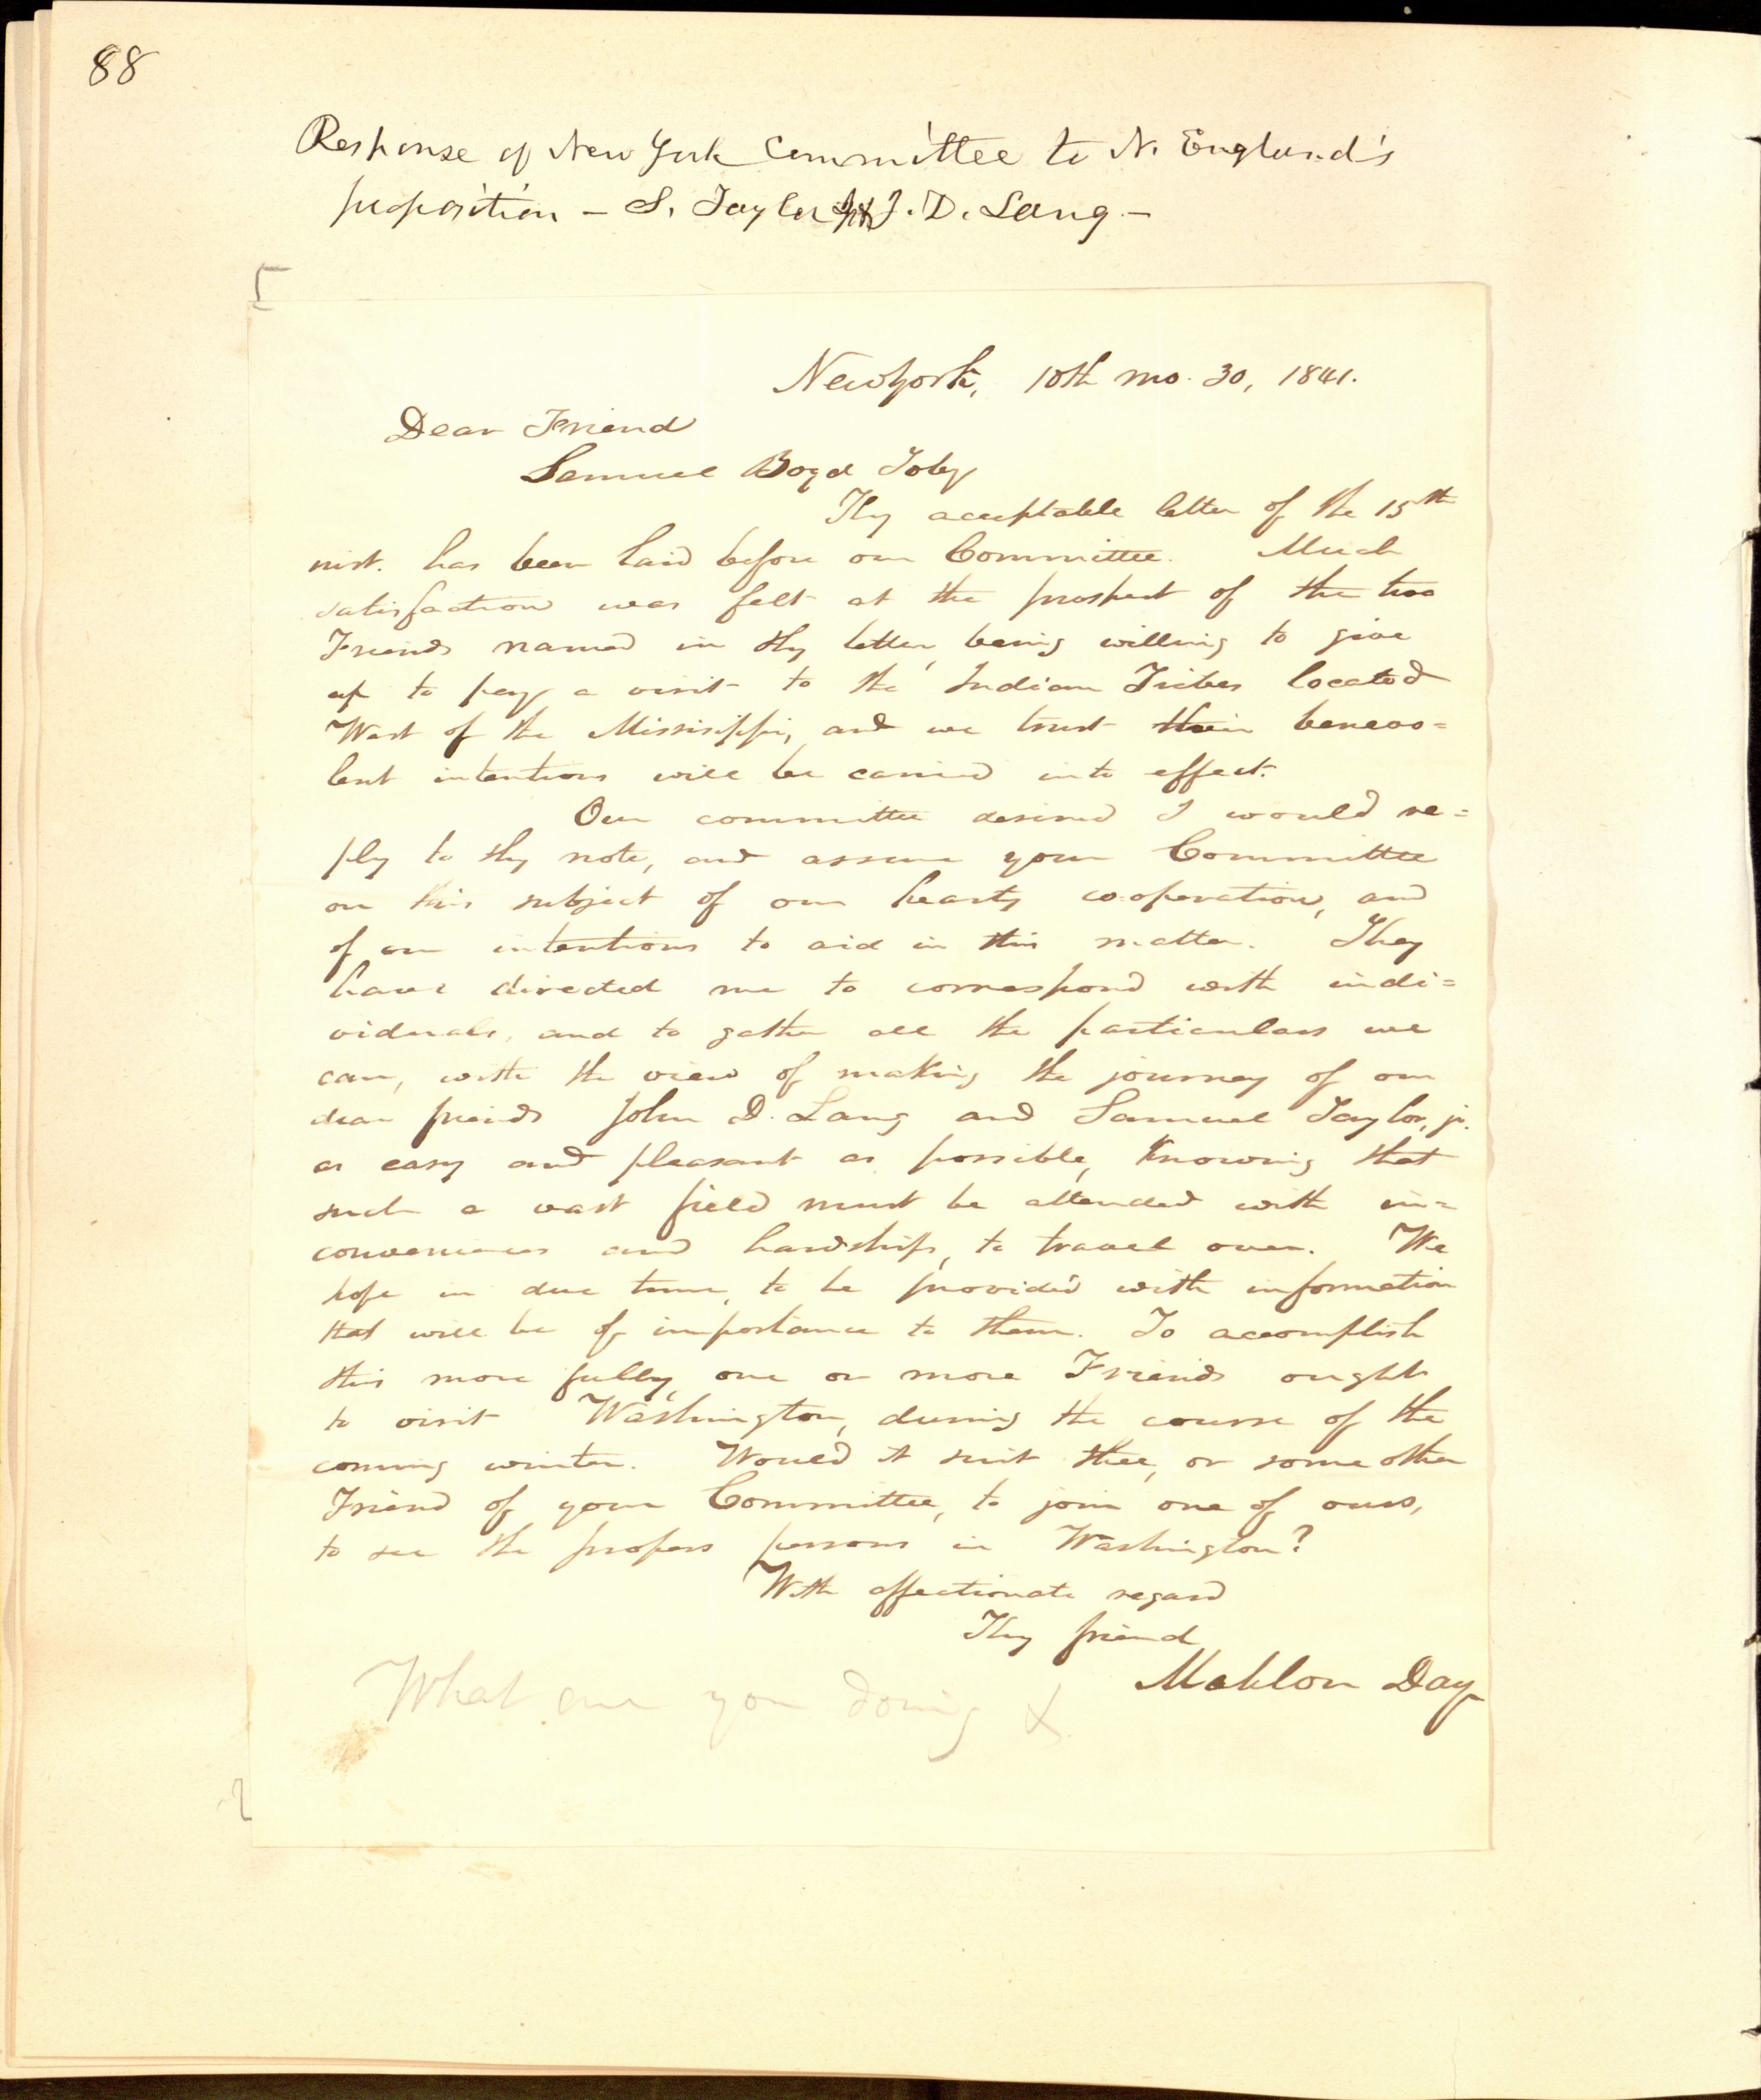 88
Response of New York Committee to N. England's
proposition – S. Taylor Jr & J. D. Lang. –
New York, 10th mo. 30, 1841.
Dear Friend
Samuel Boyd Toby
Thy acceptable letter of the 15th
inst. has been laid before our Committee. Much
satisfaction was felt at the prospect of the two
Friends named in thy letter, being willing to give
up to pay a visit to the Indian Tribes located
West of the Missisippi, and we trust their benevo=
lent intentions will be carried into effect.
Our committee desired I would re=
ply to thy note, and assure your Committee
on this subject of our hearty co-operation, and
of our intentions to aid in this matter. They
have directed me to correspond with indi=
viduals, and to gather all the particulars we
can, with the view of making the journey of our
dear friends John D. Lang and Samuel Taylor, jr.
as easy and pleasant as possible, knowing that
such a vast field must be attended with in=
conveniences and hardships, to travel over. We
hope in due time, to be provided with information
that will be of importance to them. To accomplish
this more fully, one or more Friends ought
to visit Washington, during the course of the
coming winter. Would it suit thee, or some other
Friend of your Committee, to join one of ours,
to see the propers persons in Washington?
With affectionate regard
Thy friend
Mahlon Day
What are you doing